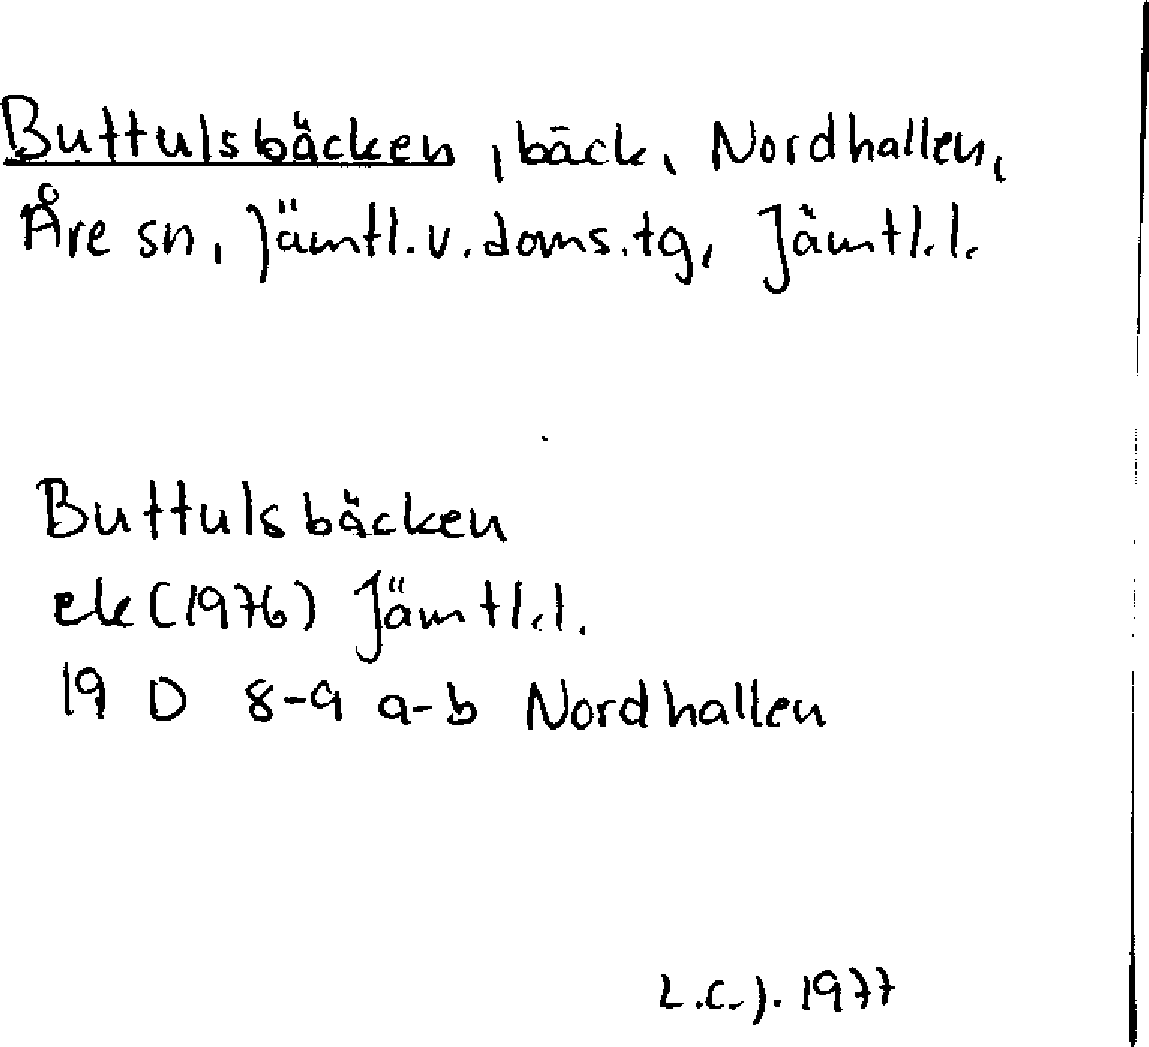 Buttulsbäcken, bäck, Nordhallen,
Åre sn, Jämtl.v.doms.tg, Jämtl.l.
Buttulsbäcken
ek(1976) Jämtl.l.
19 D 8-9 a-b Nordhallen
L.C.J. 1977